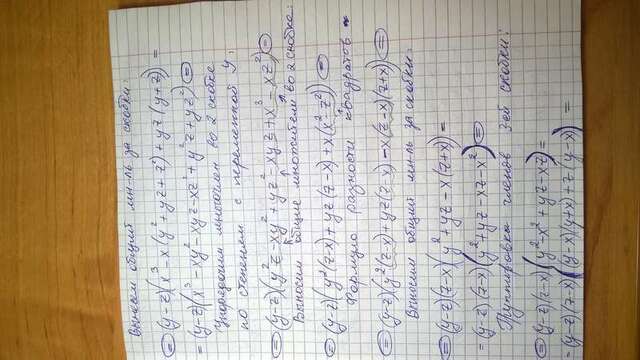 Вынесем общий мн-ль за скобки:
= (y-z)(x³-x(y²+yz+z²)+yz(y+z)) =
= (y-z)(x³-xy²-xyz-xz²+y²z+yz²) =
Упорядочим многочлен во 2 скобке
по степеням с переменной y:
= (y-z)(y²z-xy²+yz²-xyz+x³-xz²) =
Выносим общие множители во 2 скобке:
= (y-z)(y²(z-x)+yz(z-x)+x(x²-z²)) =
Формула разности квадратов
= (y-z)(y²(z-x)+yz(z-x)-x(z-x)(z+x)) =
Выносим общий мн-ль за скобки:
= (y-z)(z-x)(y²+yz-x(z+x)) =
= (y-z)(z-x)(y²+yz-xz-x²) =
Группировка членов 3ей скобки:
= (y-z)(z-x)(y²-x²+yz-xz) =
= (y-z)(z-x)((y-x)(y+x)+z(y-x)) =